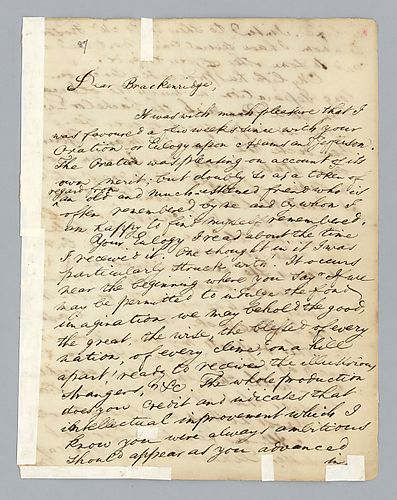 87
Dear Brackenridge,
It was with much pleasure that I
was favoured a few weeks since with your
Oration or Eulogy upon Adams and Jefferson.
The Oration was pleasing on account of its
own merit; but doubly so as a token of
regard from
an old and much-esteemed friend who is
often remembered by me and by whom I
am happy to find myself remembered.
Your Eulogy I read about the time
I received it. One thought in it I was
particularly struck with. It occurs
near the beginning where you say "If we
may be permitted to indulge the fond
imagination we may behold the good,
the great, the wise, the blessed of every
nation, of every clime, on a hill
apart, ready to received the illustrious
strangers, &c. The whole production
does you credit and indicates that
intellectual improvement which I
know you were always ambitious
should appear as you advanced
in